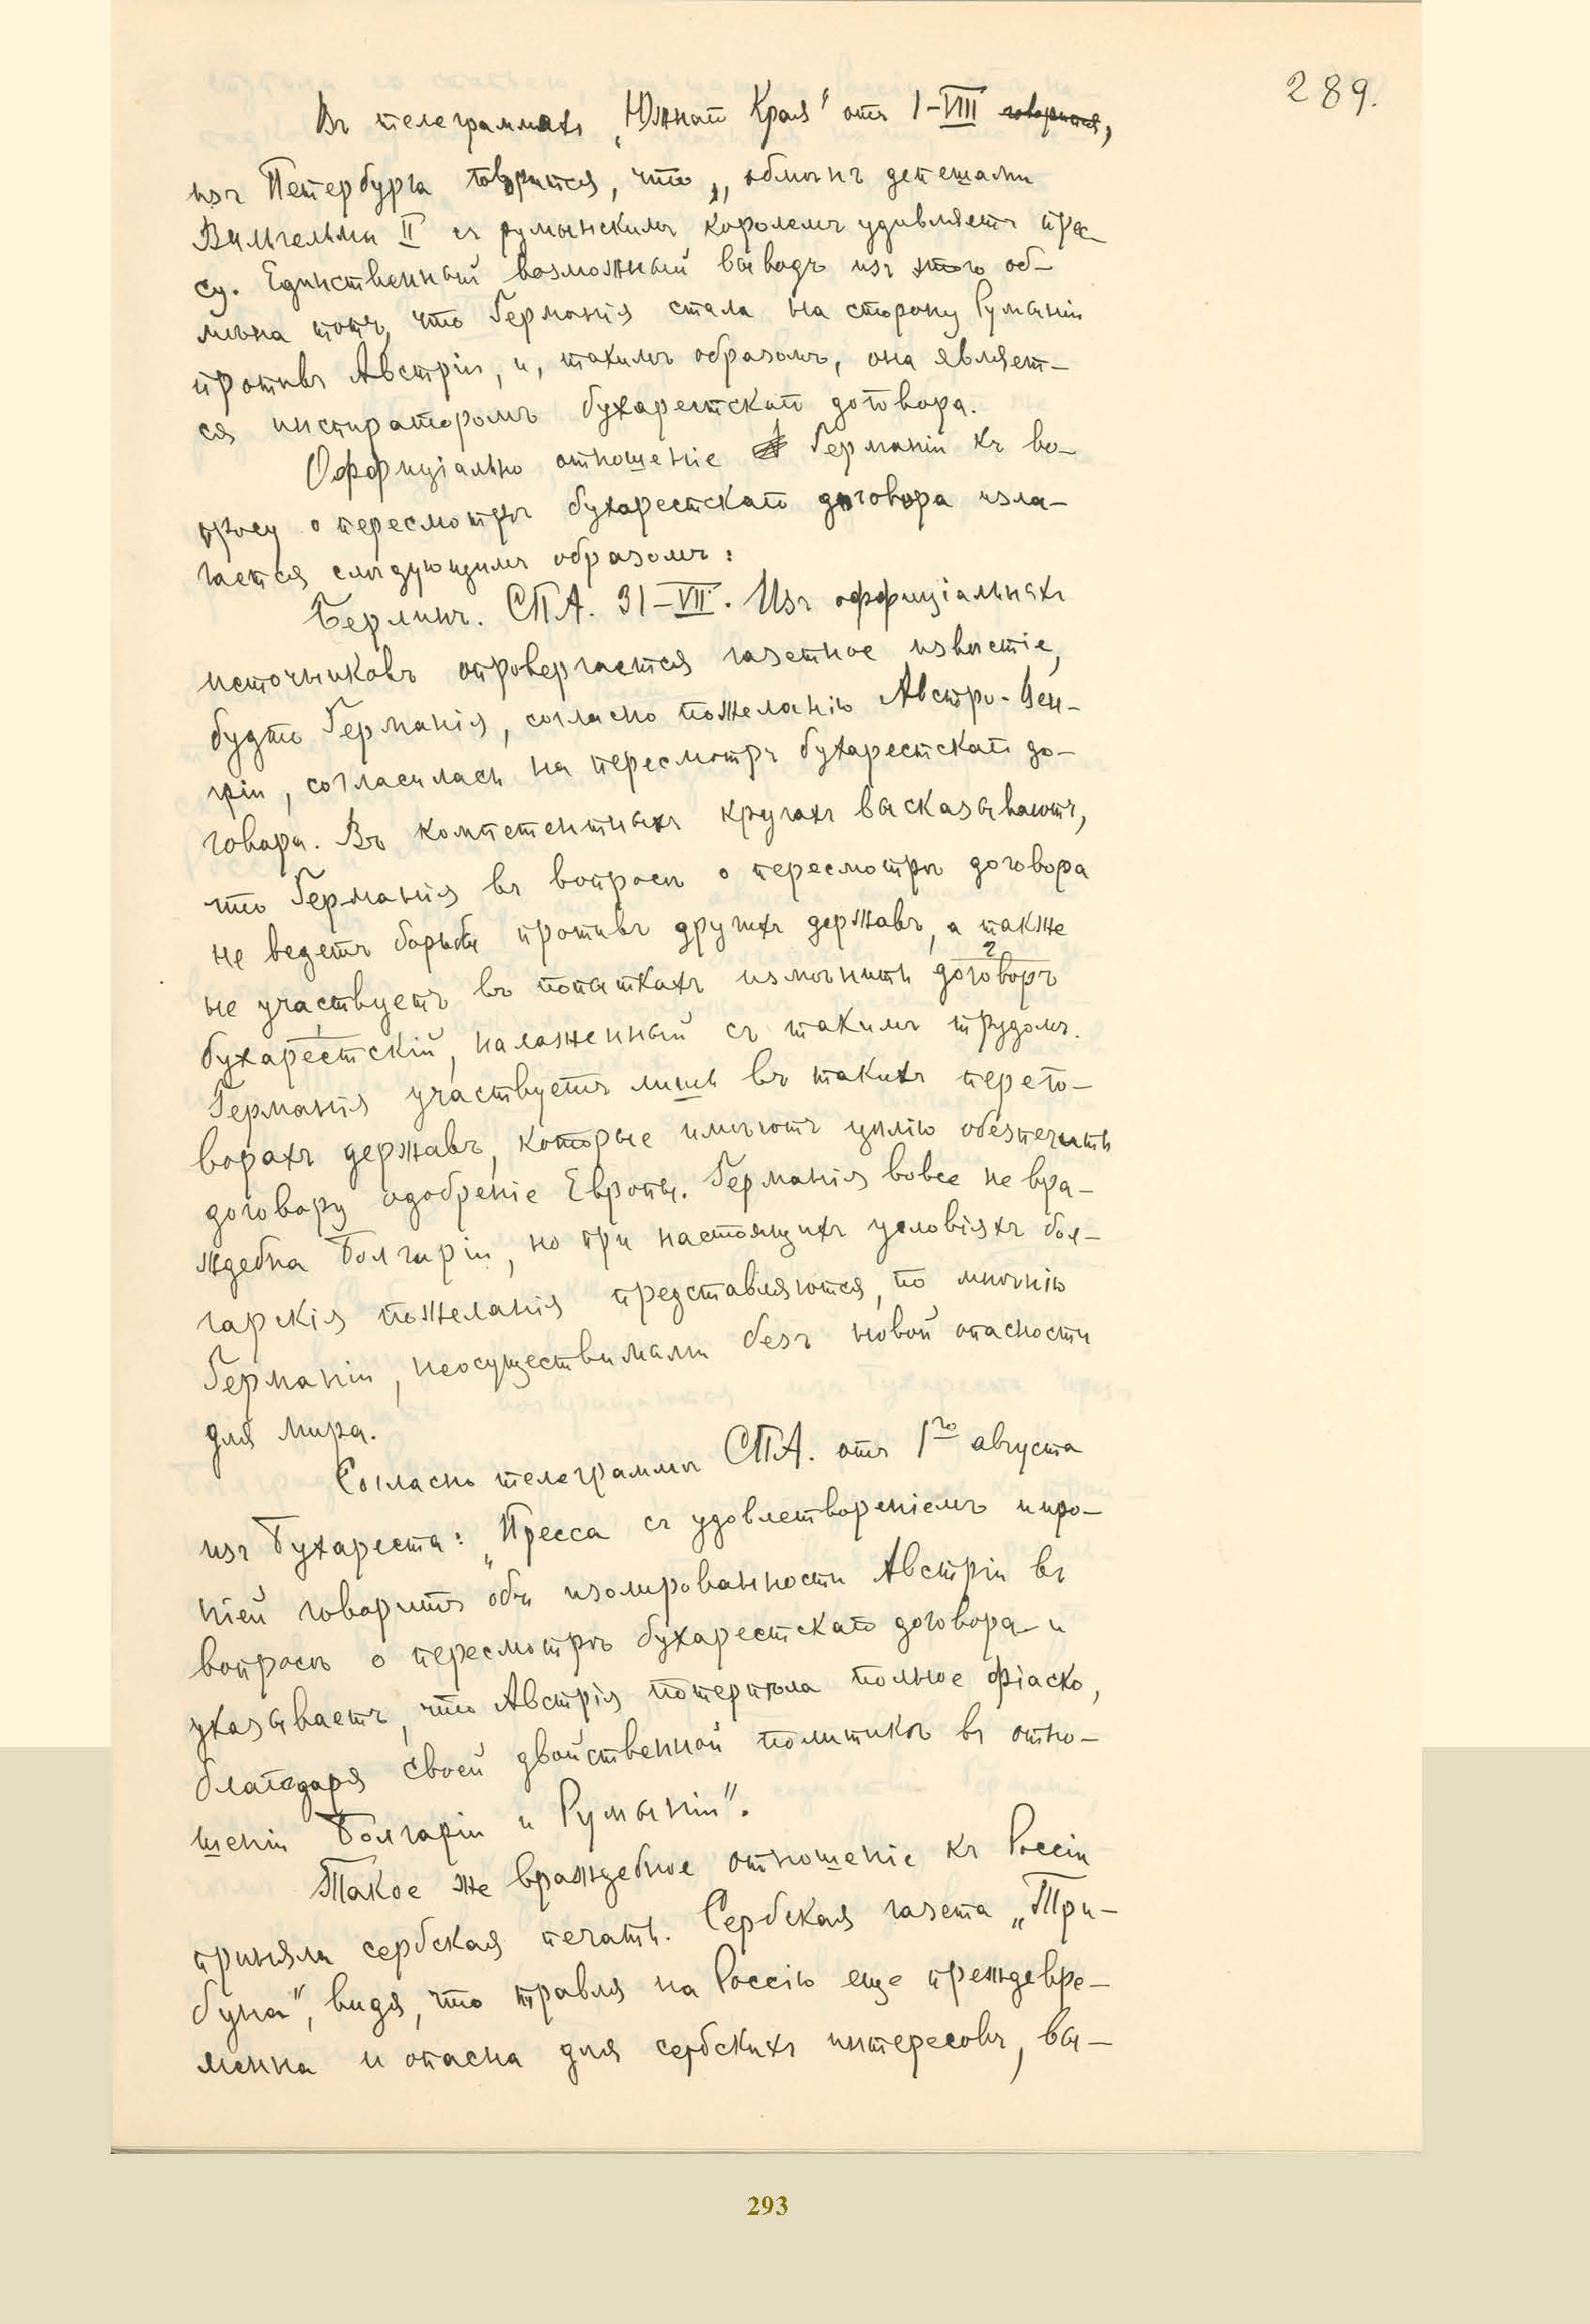 289.
Въ телеграммахъ „Южнаго Края" отъ 1-VIII говорится,
изъ Петербурга говорится, что „обмѣнъ депешами
Вильгельма II съ румынскимъ королемъ удивляетъ прес-
су. Единственный возможный выводъ изъ этого об-
мѣна тотъ, что Германія стала на сторону Румыніи
противъ Австріи, и, такимъ образомъ, она являет-
ся инспираторомъ бухарестскаго договора.
Оффиціально отношеніе Германіи къ во-
просу о пересмотрѣ бухарестскаго договора изла-
гается слѣдующимъ образомъ:
Берлинъ. СПА. 31-VII. Изъ оффиціальныхъ
источниковъ опровергается газетное извѣстіе,
будто Германія, согласно пожеланію Австро-Вен-
гріи, согласилась на пересмотръ бухарестскаго до-
говора. Въ компетентныхъ кругахъ высказываютъ,
что Германія въ вопросѣ о пересмотрѣ договора
не ведетъ борьбы противъ другихъ державъ, а также
не участвуетъ въ попыткахъ измѣнить договоръ 2
бухарестскій, налаженный съ такимъ трудомъ.
Германія участвуетъ лишь въ такихъ перего-
ворахъ державъ, которые имѣютъ цѣлію обезпечить
договору одобреніе Европы. Германія вовсе не вра-
ждебна Болгаріи, но при настоящихъ условіяхъ бол-
гарскія пожеланія представляются, по мнѣнію
Германіи, неосуществимыми безъ новой опасности
для мира.
Согласно телеграммы СПА. отъ 1го августа
изъ Бухареста: „Пресса съ удовлетвореніемъ и иро-
ніей говоритъ объ изолированности Австріи въ
вопросѣ о пересмотрѣ бухарестскаго договора и
указываетъ, что Австрія потерпѣла полное фіаско,
благодаря своей двойственной политикѣ въ отно-
шеніи Болгаріи и Румыніи".
Такое же враждебное отношеніе къ Россіи
приняла сербская печать. Сербская газета „Три-
буна", видя, что травля на Россію еще преждевре-
менна и опасна для сербскихъ интересовъ, вы-
293